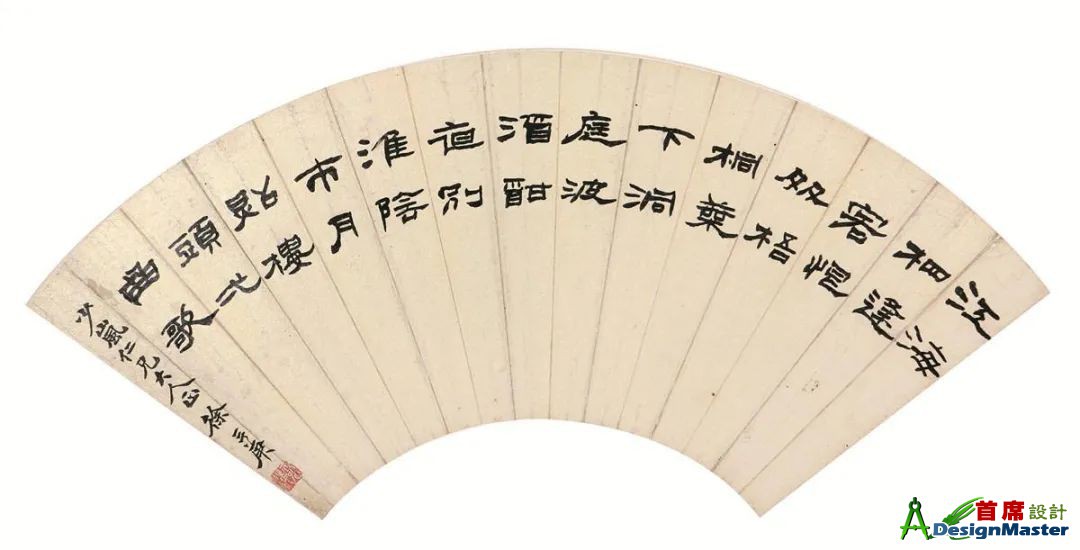 江海
相逢
客恨
多梧
桐葉
下洞
庭波
酒酣
夜別
淮陰
市月
照樓
頭弌
曲歌
少嵐仁兄大人正 徐三庚
首席設計
DesignMaster